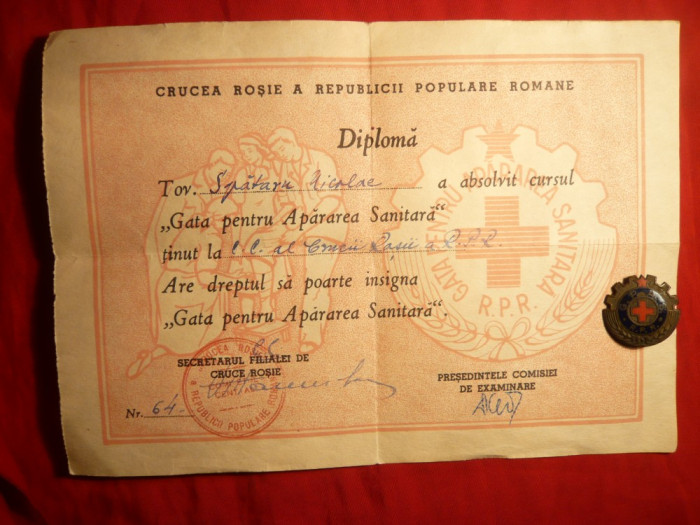 CRUCEA ROȘIE A REPUBLICII POPULARE ROMANE
Diplomă
Tov. Spătaru Nicolae a absolvit cursul
„Gata pentru Apărarea Sanitară“
ținut la C.C. al Crucii Roșii a R.P.R.
Are dreptul să poarte insigna
„Gata pentru Apărarea Sanitară“.
GATA PENTRU APĂRAREA SANITARĂ
R.P.R.
SECRETARUL FILIALEI DE
CRUCE ROȘIE
PREȘEDINTELE COMISIEI
DE EXAMINARE
Nr. 64
CRUCEA ROȘIE
A REPUBLICII POPULARE ROMÂNE